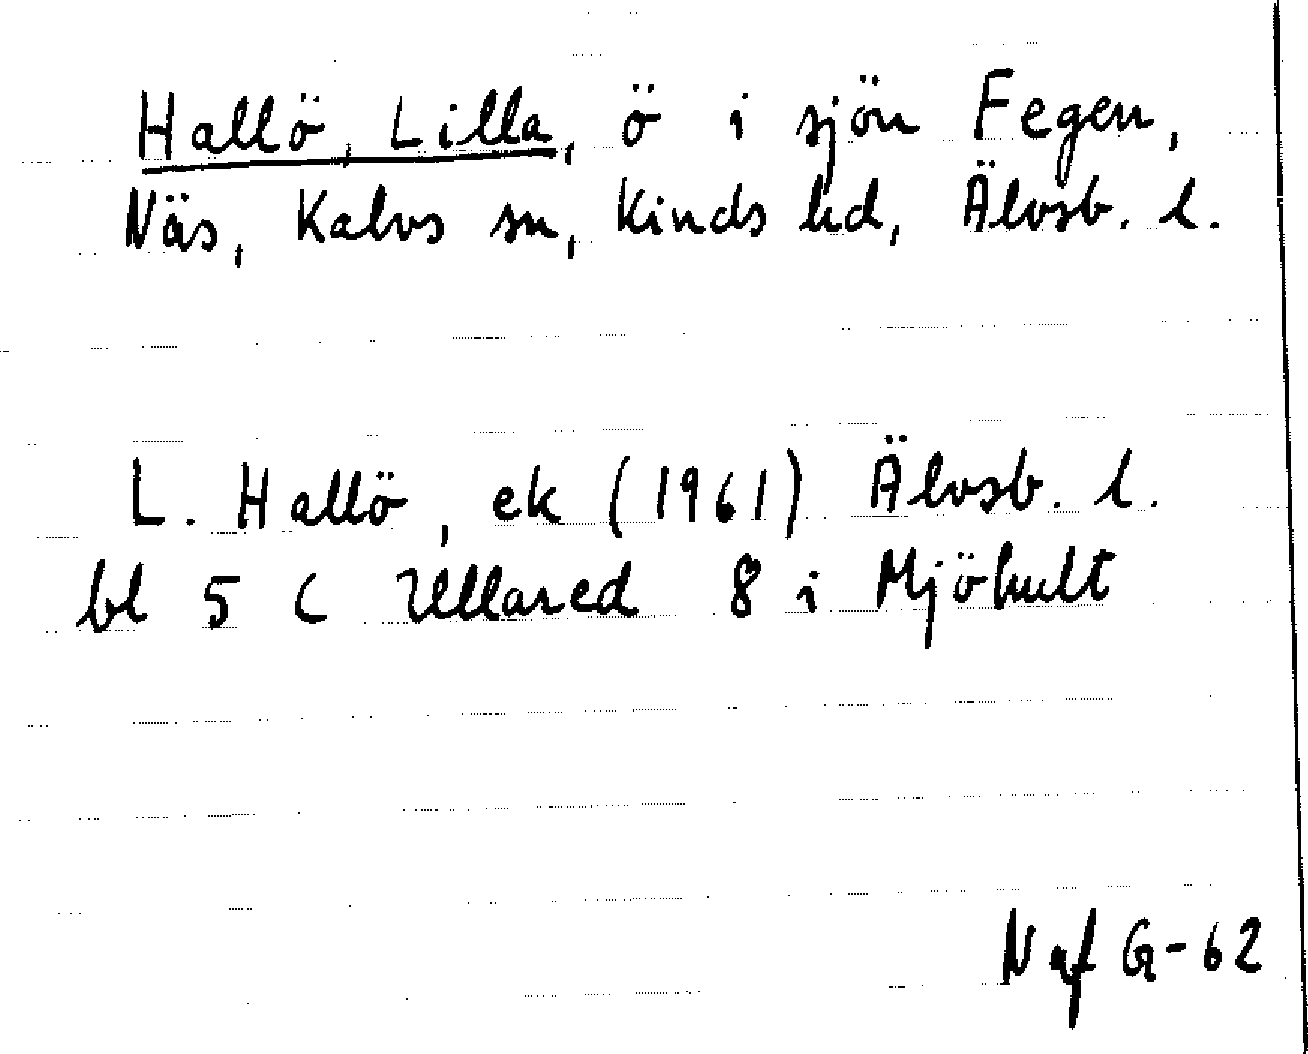 Hallö, Lilla, ö i sjön Fegen,
Näs, Kalvs sn, Kinds hd, Älvsb. l.
L. Hallö, ek (1961) Älvsb. l.
bl 5 C Ullared 8 i Mjöhult
N af G-62